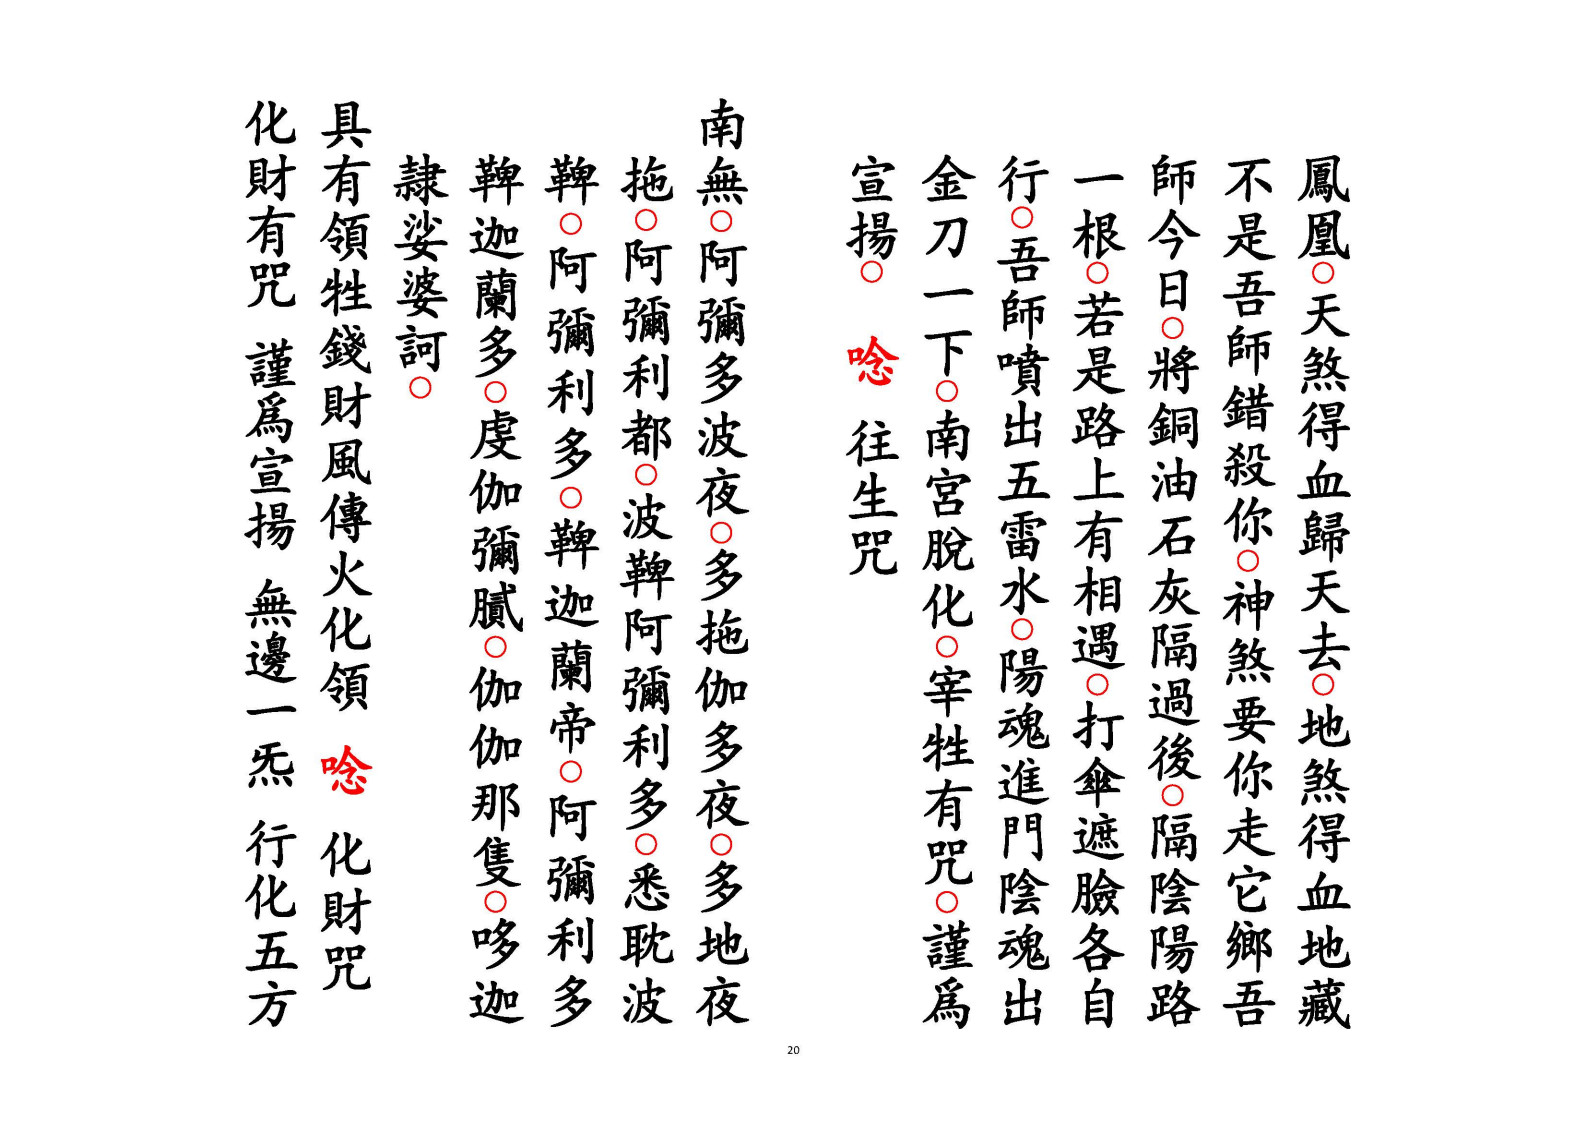 鳳凰○天煞得血歸天去○地煞得血地藏
不是吾師錯殺你○神煞要你走它鄉吾
師今日○將銅油石灰隔過後○隔陰陽路
一根○若是路上有相遇○打傘遮臉各自
行○吾師噴出五雷水○陽魂進門陰魂出
金刀一下○南宮脫化○宰牲有咒○謹為
宣揚○ 唸 往生咒
南無○阿彌多波夜○多拖伽多夜○多地夜
拖○阿彌利都○波鞞阿彌利多○悉耽波
鞞○阿彌利多○鞞迦蘭帝○阿彌利多
鞞迦蘭多○虔伽彌膩○伽伽那隻○哆迦
隸娑婆訶○
具有領牲錢財風傳火化領 唸 化財咒
化財有咒 謹為宣揚 無邊一炁 行化五方
20